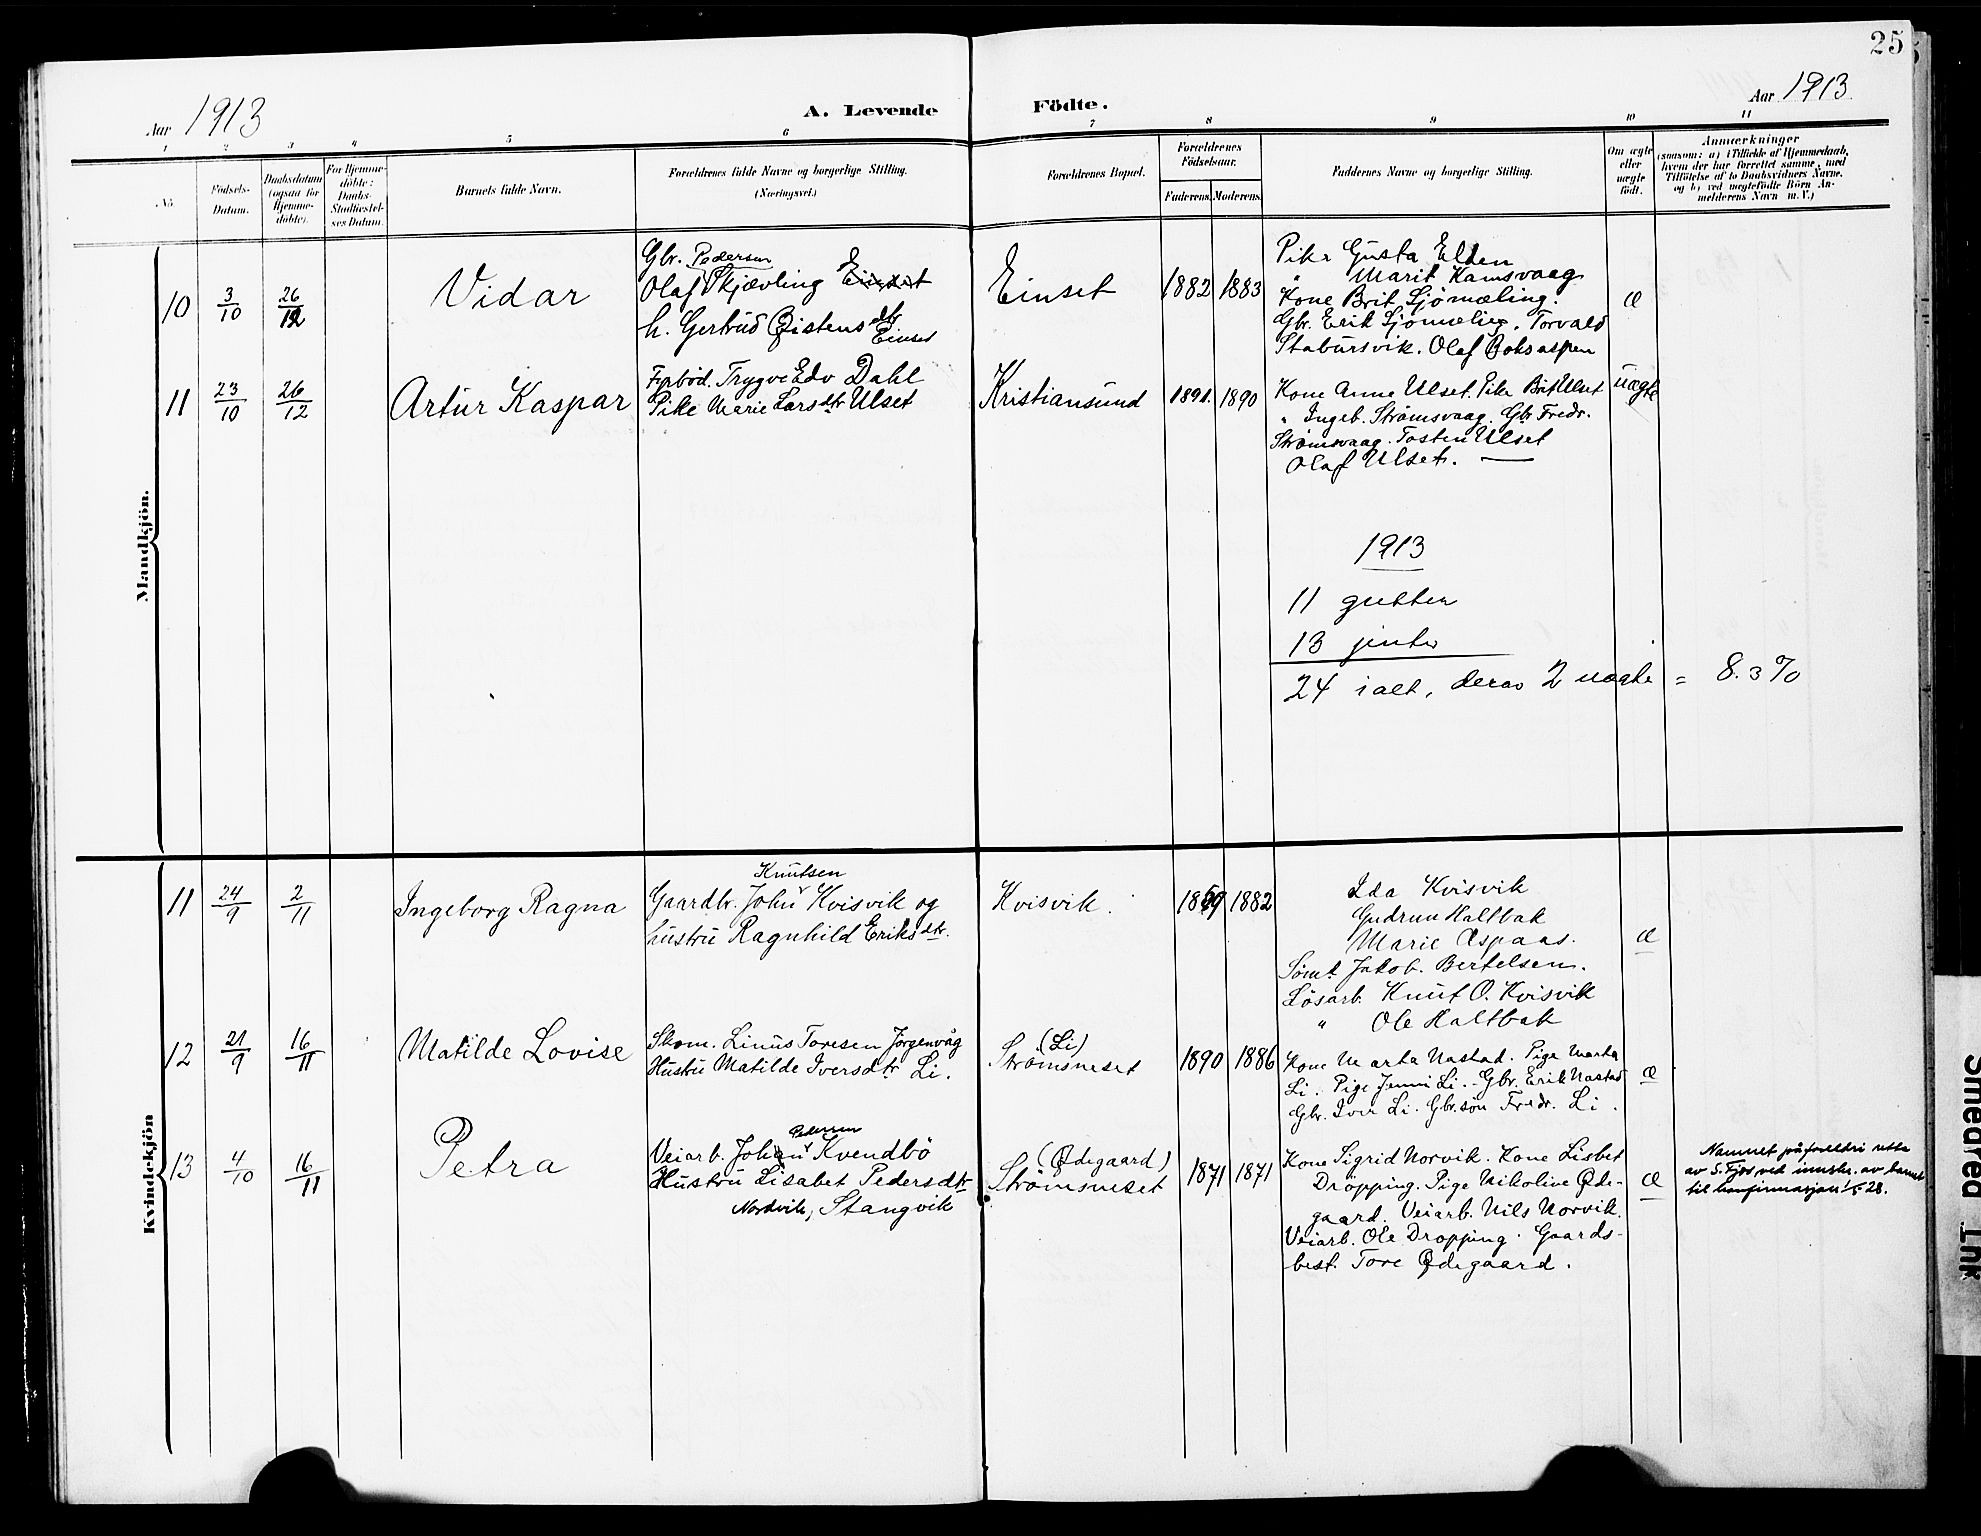 25
Aar 1913
A. Levende Födte.
Aar 1913
1 2 3 4 5 6 7 8 9 10 11
No.
Födsels-
Datum.
Daabsdatum
(ogsaa for
Hjemme-
döbte).
For Hjemme-
döbte:
Daabs-
Stadfæstel-
ses Datum.
Barnets fulde Navn.
Forældrenes fulde Navne og borgerlige Stilling.
(Næringsvei.)
Forældrenes Bopæl.
Forældrenes
Födselsaar.
Faderens. Moderens.
Faddernes Navne og borgerlige Stilling.
Om ægte
eller
uægte
født.
Anmærkninger
(saasom: a) i Tilfælde af Hjemmedaab,
hvem der har forrettet samme, med
Tilføielse af to Daabsvidners Navne,
og b) ved uægtefödte Börn An-
melderens Navn m. V.)
Mandkjön.
10
3/10
26/12
Vidar
Gbr. Pedersen
Olaf Skjævling Einset
h. Gertrud Øistensdtr
Einset
Einset
1882 1883
Pike Gusta Elden
" Marit Kamsvaag
Kone Brit Sjømæling.
Gbr. Erik Sjømæling. Torvald
Stabursvik. Olaf Boksaspen
æ
11
23/10
26/12
Artur Kaspar
Fyrbød. Trygve Edv Dahl
Pike Marie Larsdtr Ulset
Kristiansund
1891. 1890
Kone Anne Ulset. Pike Brit Ulset
" Ingeb. Strømsvaag. Gbr Fredr.
Strømsvaag. Tosten Ulset
Olaf Ulset. —
uægte
1913
11 gutter
13 jenter
24 ialt, derav 2 uægte = 8.3%
Kvindekjön
11
24/9
2/11
Ingeborg Ragna
Knutsen
Gaardbr. John Kvisvik og
hustru Ragnhild Eriksdtr.
Kvisvik.
1869 1882
Ida Kvisvik
Gudrun Haltbak
Marie Aspaas.
Sømt. Jakob. Bertelsen.
Løsarb. Knut O. Kvisvik
" Ole Haltbak
æ
12
21/9
16/11
Matilde Lovise
Skom. Linus Toresen Jørgenvåg
Hustru Matilde Iversdtr Li.
(Li)
Strømsneset
1890 1886
Kone Marta Nastad. Pige Marta
Li. Pige Jenni Li. - Gbr. Erik Nastad
Gbr. Iver Li. Gbr.søn Fredr. Li.
æ
13
4/10
16/11
Petra
Pedersen
Veiarb. Johan Kvendbö
Hustru Lisabet Pedersdtr
Nordvik, Stangvik
(Ødegaard)
Strømsneset
1871 1871
Kone Sigrid Norvik. Kone Lisbet
Dröpping. Pige Nikoline Øde-
gaard. Veiarb. Nils Norvik.
Veiarb. Ole Dropping. Gaards-
best. Tore Ødegaard.
æ
Namnet på foreldri retta
av S. Fjøs ved innskr. av barnet
til konfirmasjon 1/5 28.
Smeared Ink